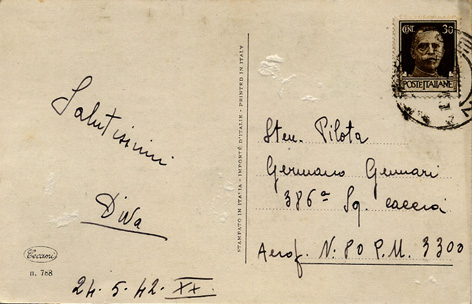 Salutissimi
Diva
Cecami
n. 768
24. 5. 42. XX.
STAMPATO IN ITALIA - IMPORTÉ D'ITALIE - PRINTED IN ITALY
CENT. 30
POSTE ITALIANE
Sten. Pilota
Germano Gennari
386ª Sq. caccia
Aerop. N. 80 P.M. 3300